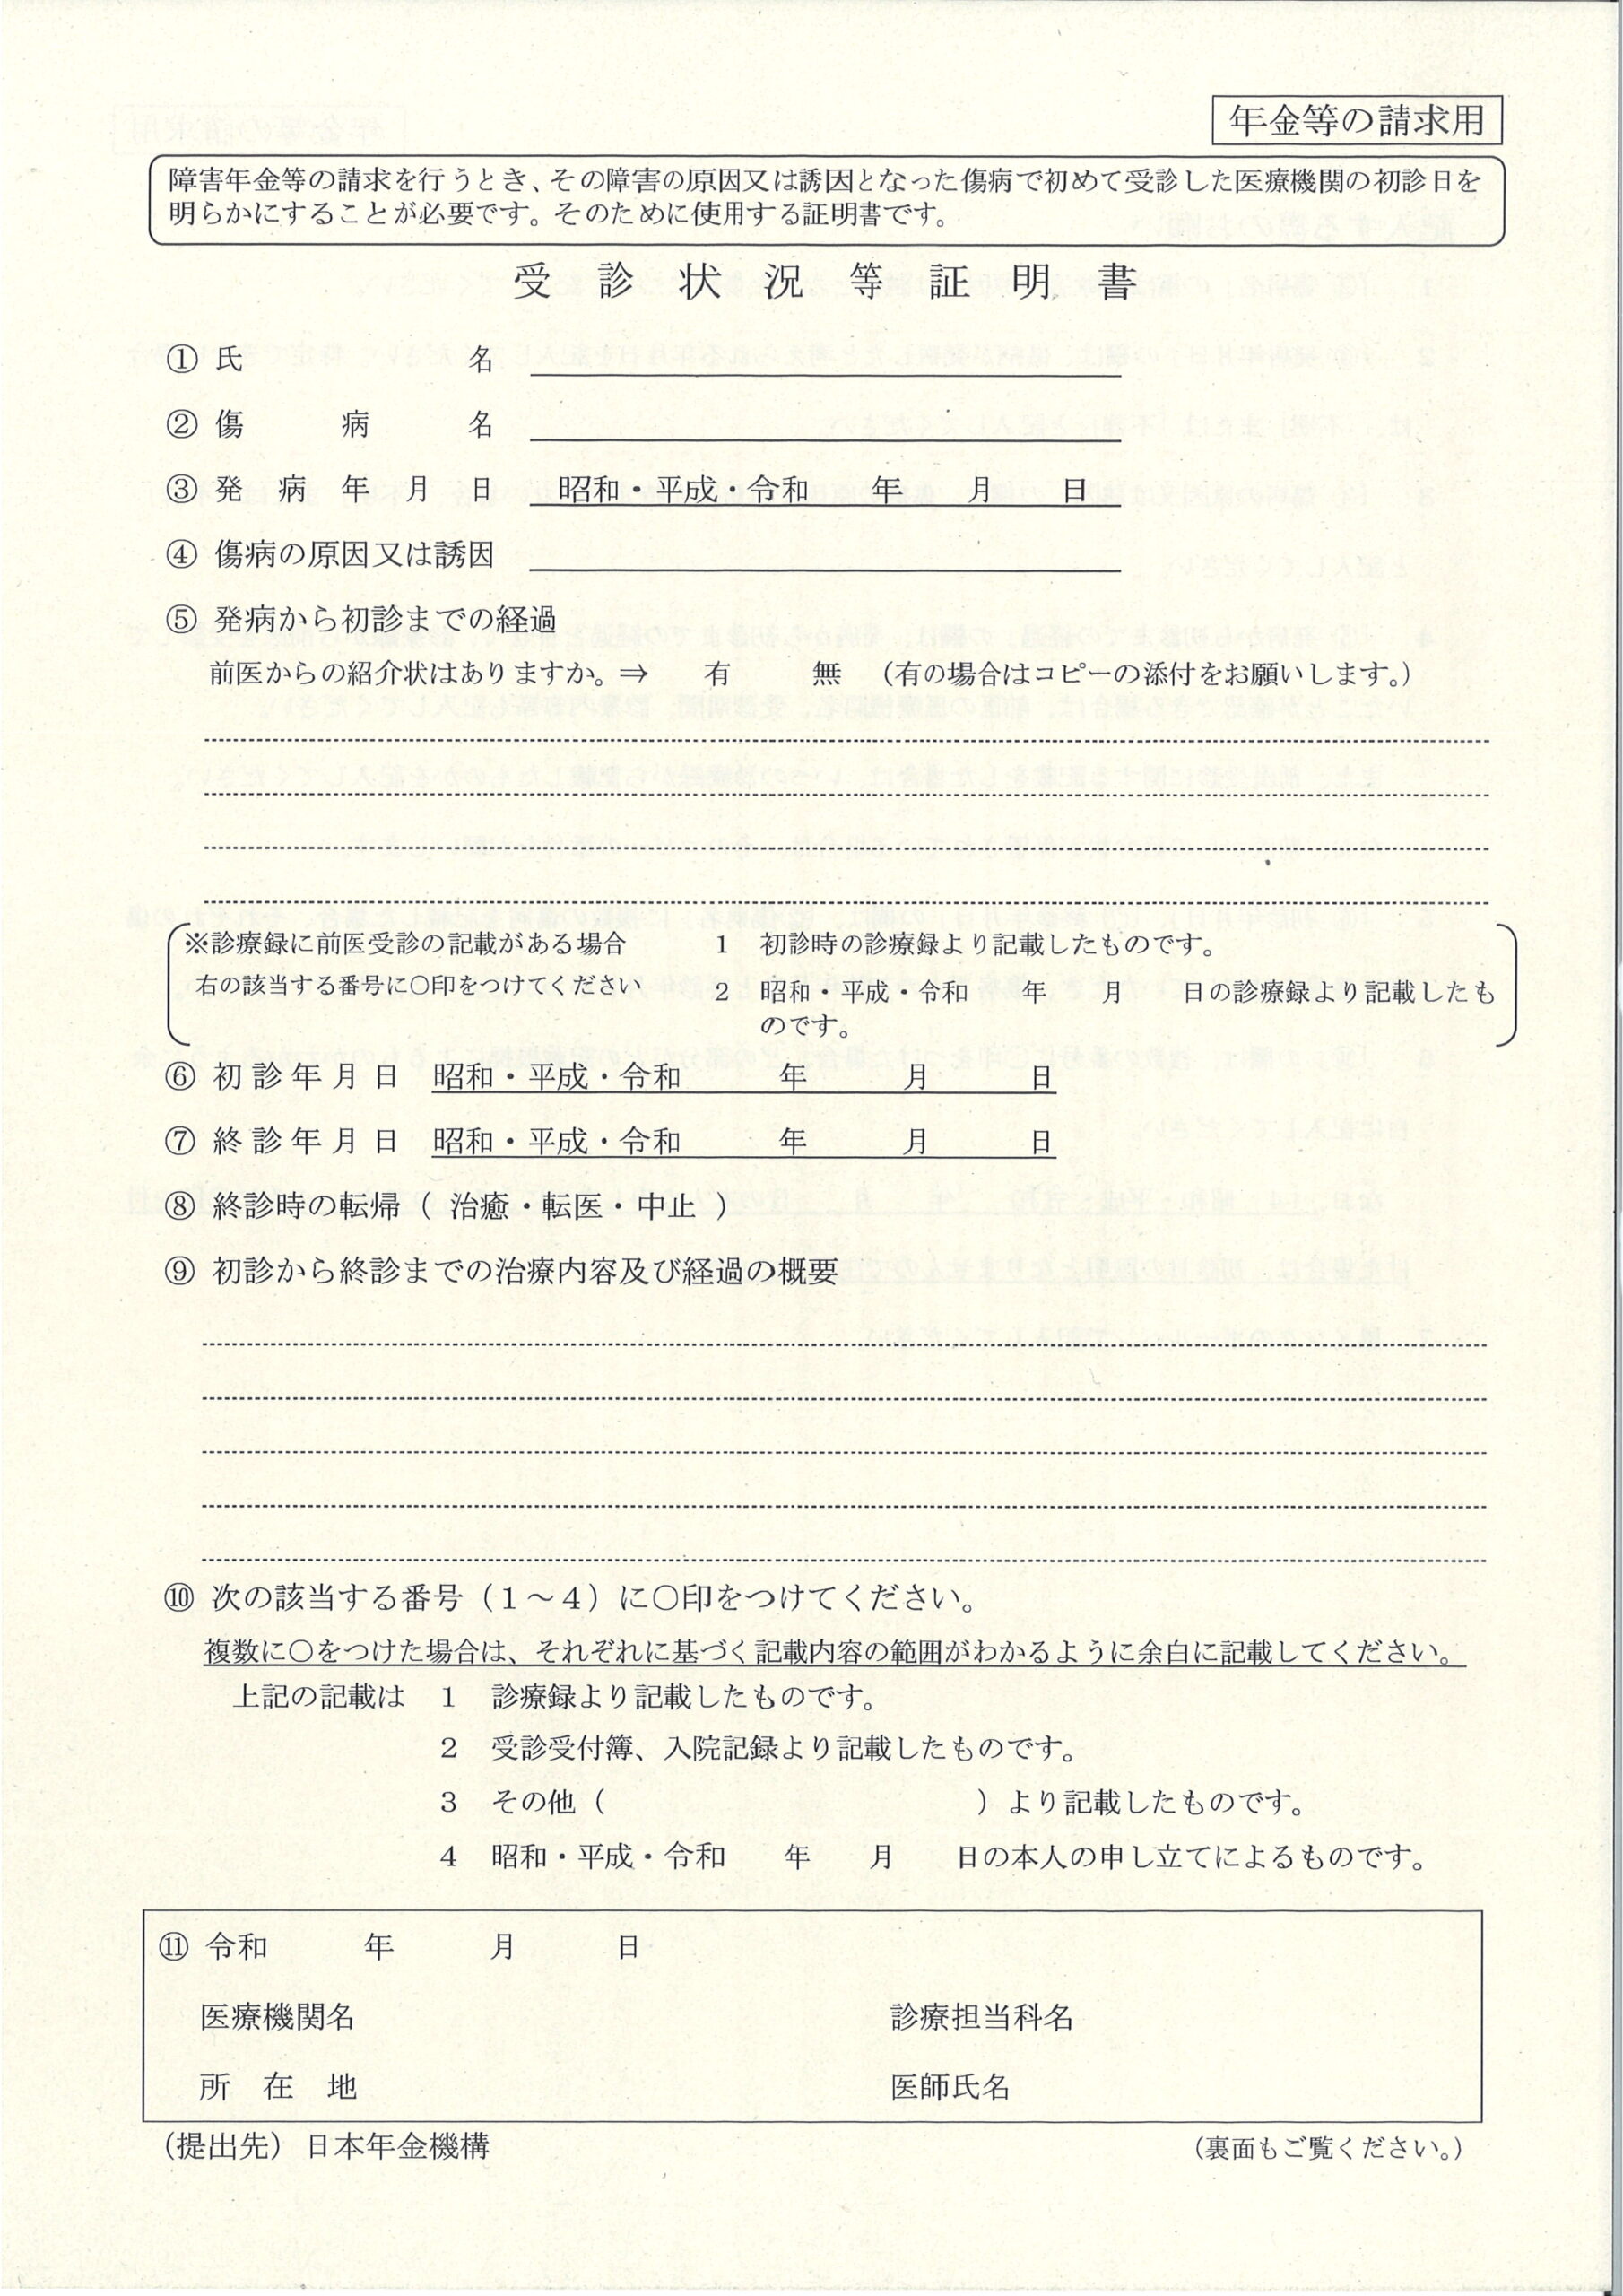 年金等の請求用
障害年金等の請求を行うとき、その障害の原因又は誘因となった傷病で初めて受診した医療機関の初診日を
明らかにすることが必要です。そのために使用する証明書です。
受診状況等証明書
① 氏名
② 傷病名
③ 発病年月日 昭和・平成・令和 年 月 日
④ 傷病の原因又は誘因
⑤ 発病から初診までの経過
前医からの紹介状はありますか。⇒ 有 無 （有の場合はコピーの添付をお願いします。）
※診療録に前医受診の記載がある場合 1 初診時の診療録より記載したものです。
右の該当する番号に○印をつけてください 2 昭和・平成・令和 年 月 日の診療録より記載したも
のです。
⑥ 初診年月日 昭和・平成・令和 年 月 日
⑦ 終診年月日 昭和・平成・令和 年 月 日
⑧ 終診時の転帰（ 治癒・転医・中止 ）
⑨ 初診から終診までの治療内容及び経過の概要
⑩ 次の該当する番号（1～4）に○印をつけてください。
複数に○をつけた場合は、それぞれに基づく記載内容の範囲がわかるように余白に記載してください。
上記の記載は 1 診療録より記載したものです。
2 受診受付簿、入院記録より記載したものです。
3 その他（ ）より記載したものです。
4 昭和・平成・令和 年 月 日の本人の申し立てによるものです。
⑪ 令和 年 月 日
医療機関名 診療担当科名
所在地 医師氏名
（提出先）日本年金機構 （裏面もご覧ください。）